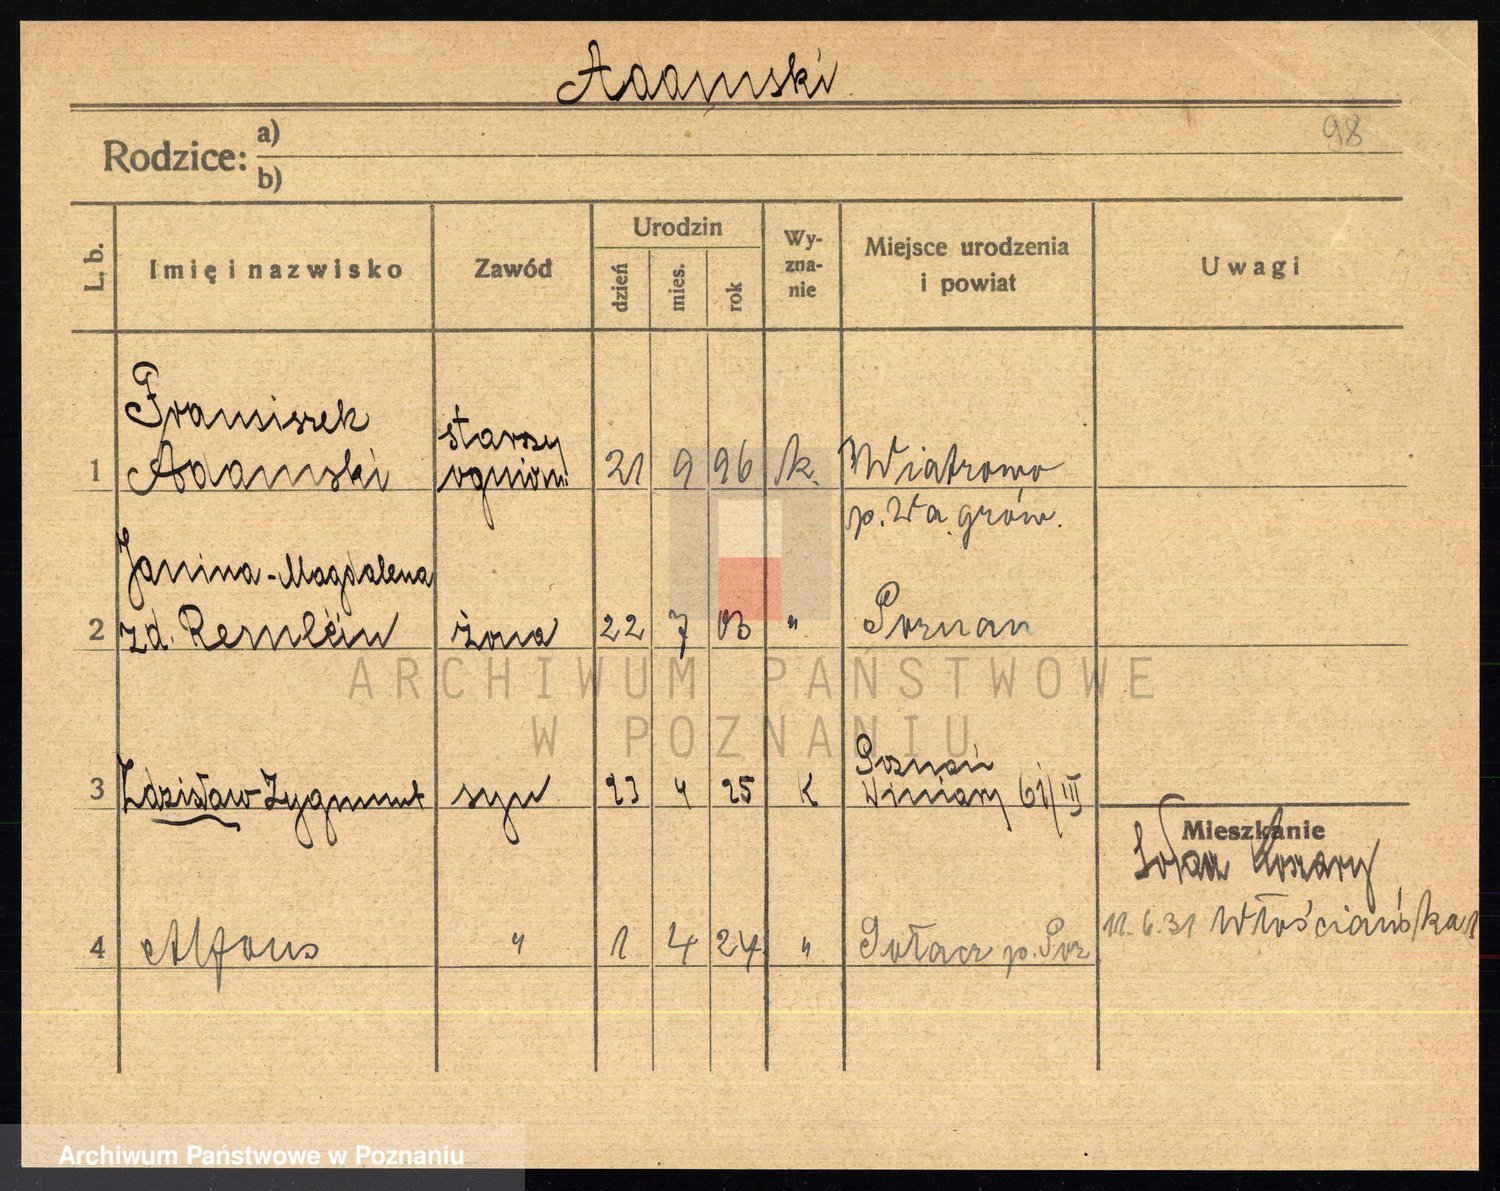 Adamski
98
Rodzice: a)
b)
L. b.
Imię i nazwisko
Zawód
Urodzin
dzień
mies.
rok
Wy-
zna-
nie
Miejsce urodzenia
i powiat
Uwagi
Franciszek
Adamski
starszy
ogniom.
1
21 9 96 k.
Wiatrowo
p. Wągrów.
Janina-Magdalena
2 zd. żona 22 7 03 " Poznań
ARCHIWUM PAŃSTWOWE
W POZNANIU
Poznań
3 Zdzisław Zygmunt syn 23 4 25 K Winiary 61/III
Mieszkanie
Sołacz Koszary
11.6.31 Włościańska
4 Alfons " 1 4 24 " Gołacz p. Poz
Archiwum Państwowe w Poznaniu